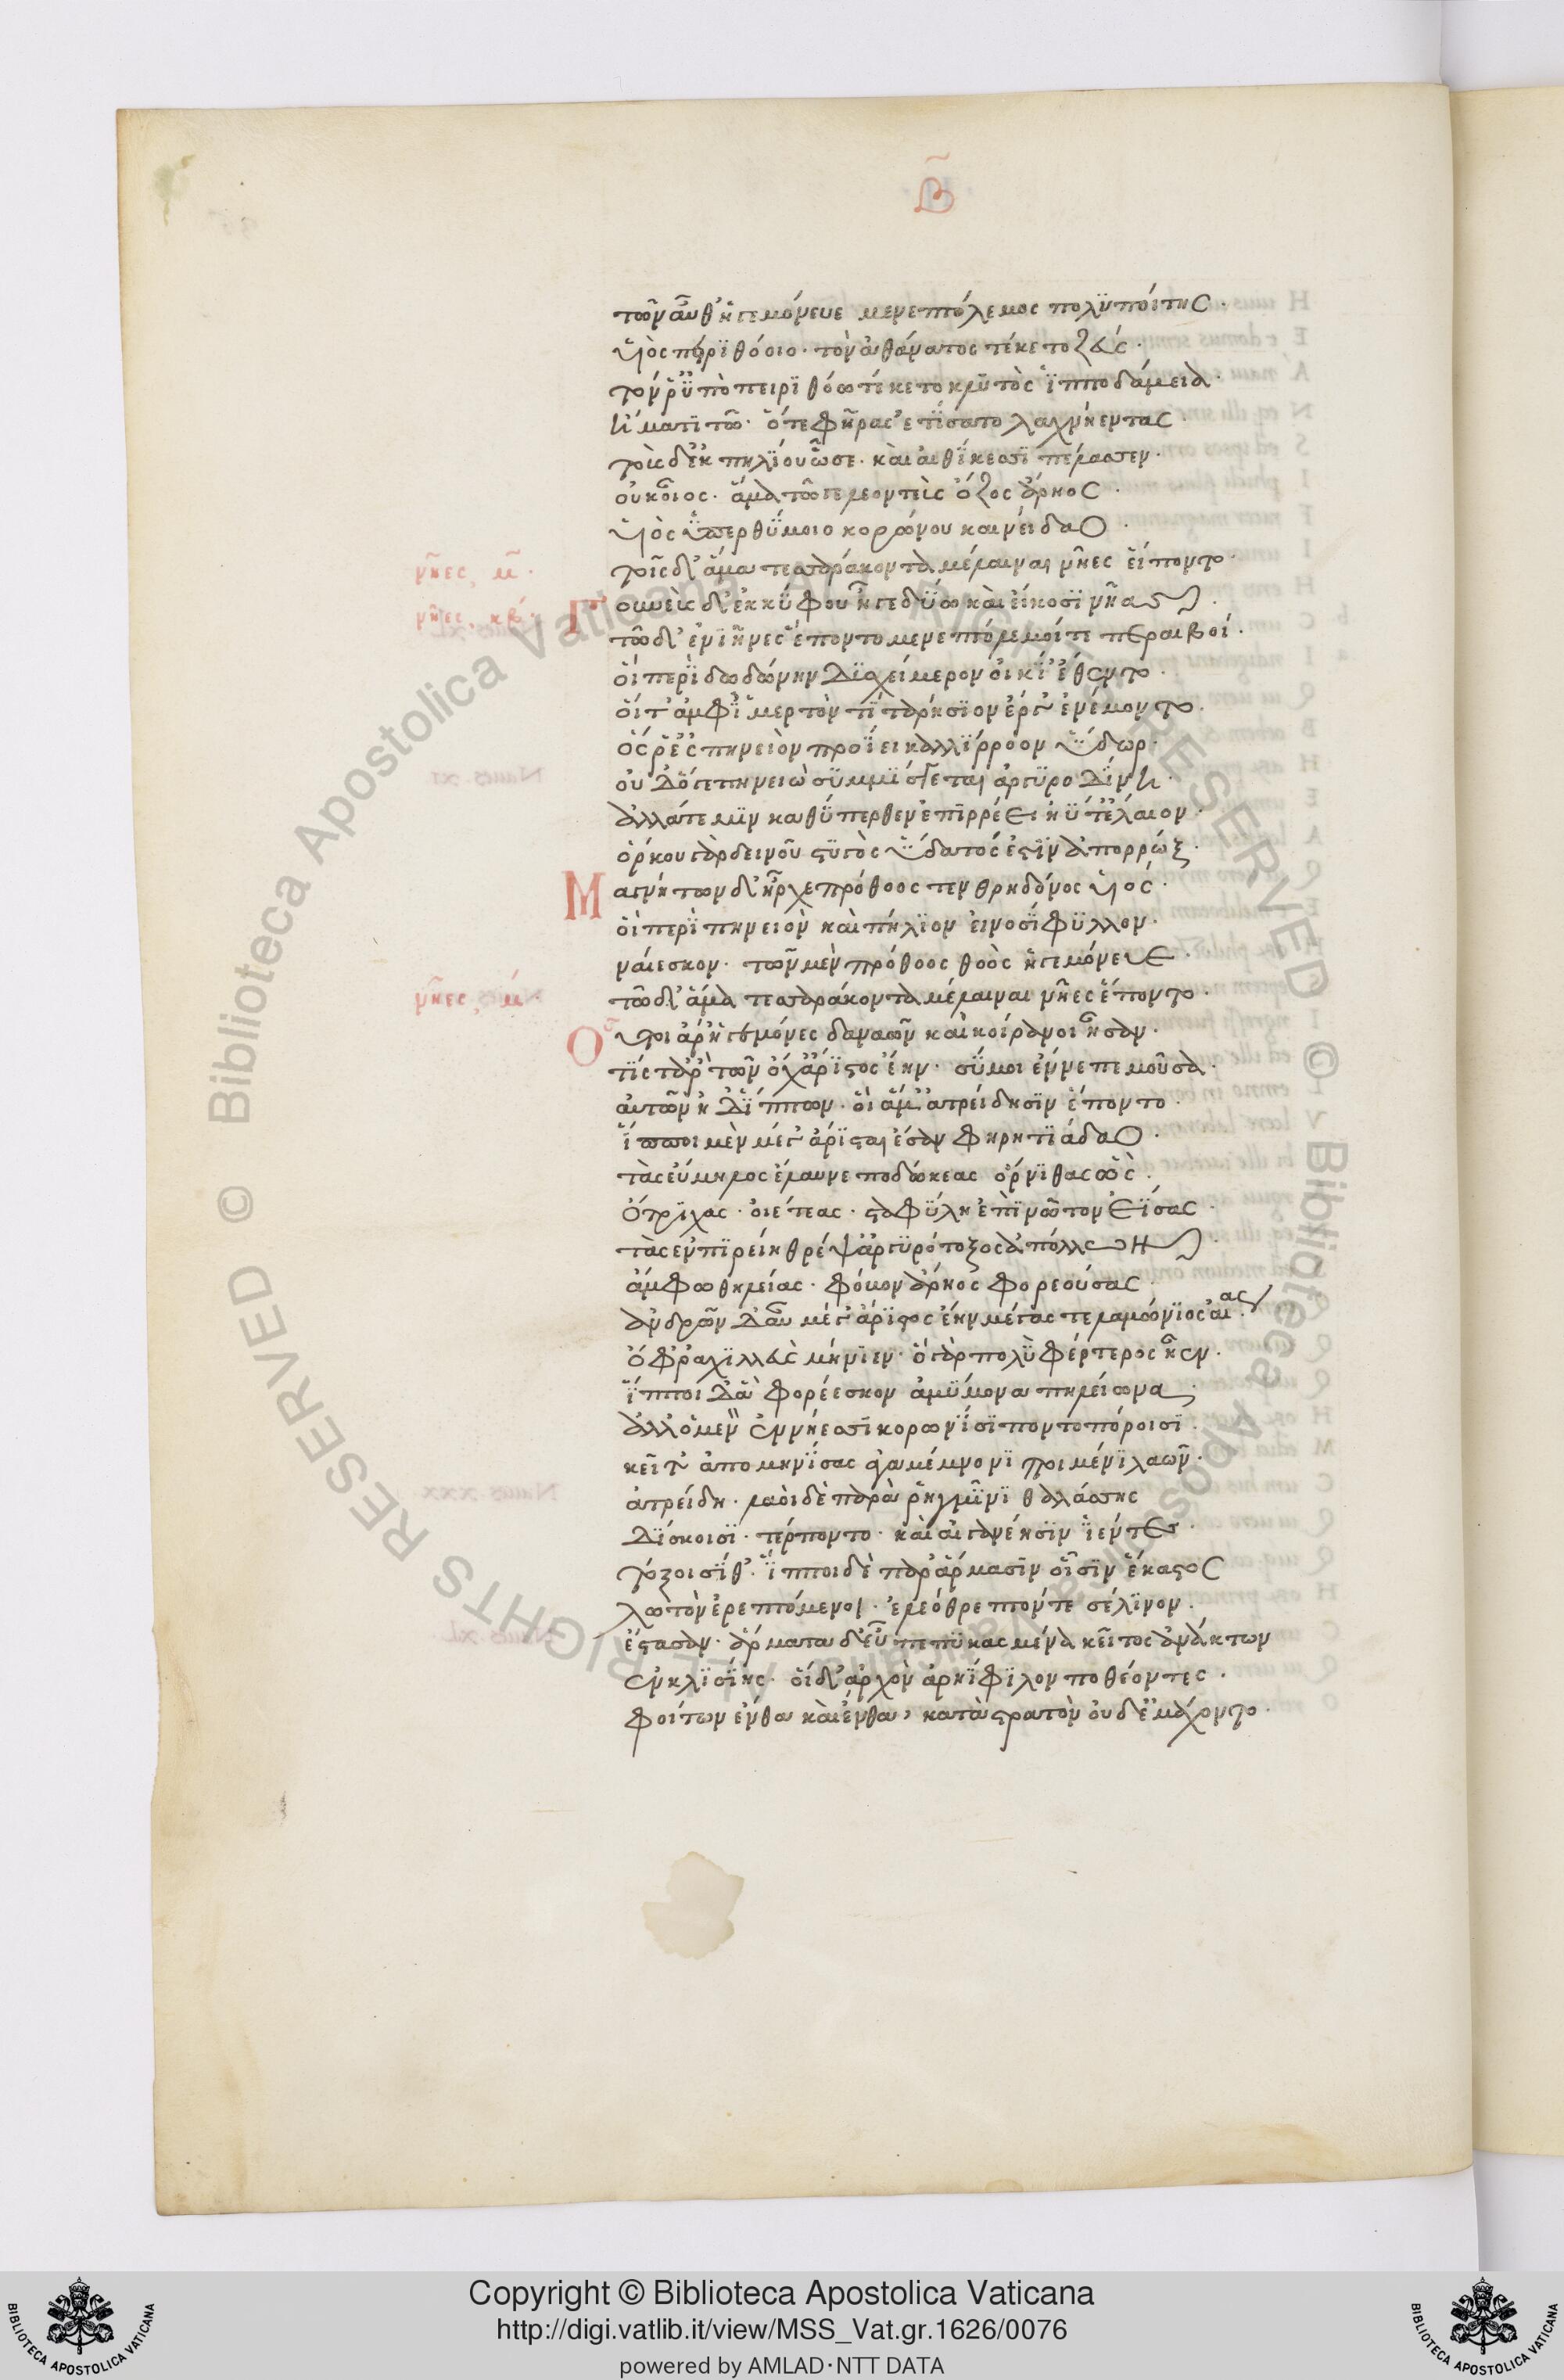 Β
τῶν αὖθ' ἡγεμόνευε μενεπτόλεμος πολϋποίτης·
ὑιὸς πειρϊθόοιο· τὸν ἀθάνατος τέκετο ζεύς·
τόν ῥ' ὑπὸ πειρϊθόω τέκετο κλϋτὸς ἱπποδάμεια·
ἤματι τῶ· ὅτε φῆρας ἐτίσατο λαχνήεντας·
τοὺς δ' ἐκ πηλίου ὦσε· καὶ αἰθίκεσσϊ πέλασσεν·
οὐκ οἶος· ἅμα τῶγε λεοντεὺς ὄζος ἄρηος·
ὑιὸς ὑπερθύμοιο κορώνου καινείδαο·
νῆες, μ·
τοῖς δ' ἅμα τεσσαράκοντα μέλαιναι νῆες ἕποντο·
νῆες, κβ·
Γουνεὺς δ' ἐκ κύφου ἦγε δύω καὶ εἴκοσϊ νῆας·
τῶ δ' ἐνϊῆνες ἕποντο μενεπτόλεμοί τε περαιβοί·
οἳ περὶ δωδώνην δϊσχείμερον οἰκί' ἔθεντο·
οἵ τ' ἀμφ' ἱμερτὸν τϊταρήσϊον ἔργ' ἐνέμοντο·
ὅς ῥ' ἐς πηνειὸν προΐει καλλίρροον ὕδωρ·
οὐδ' ὅγε πηνειῶ συμμίσγεται ἀργϋροδίνη·
ἀλλά τε μϊν καθύπερθεν ἐπϊρρέει ἠΰτ' ἔλαιον·
ὅρκου γὰρ δεινοῦ στϋγὸς ὕδατός ἐστϊν ἀπορρώξ·
Μαγνήτων δ' ἦρχε πρόθοος τενθρηδόνος ὑιός·
οἳ περὶ πηνειὸν καὶ πήλϊον εἰνοσίφϋλλον·
ναίεσκον· τῶν μὲν πρόθοος θοὸς ἡγεμόνευε·
νῆες, μ·
τῶ δ' ἅμα τεσσαράκοντα μέλαιναι νῆες ἕποντο·
Οὗτοι ἄρ' ἡγεμόνες δαναῶν καὶ κοίρανοι ἦσαν·
τίς τὰρ τῶν ὄχ' ἄρϊστος ἔην· σύ μοι ἔννεπε μοῦσα·
αὐτῶν ἠδ' ἵππων· οἳ ἅμ' ἀτρείδησϊν ἕποντο·
ἵπποι μὲν μέγ' ἄρϊσται ἔσαν φηρητϊάδαο·
τὰς εὔμηλος ἔλαυνε ποδώκεας ὄρνϊθας ὥς·
ὄτρϊχας· οἰέτεας· σταφύλη ἐπὶ νῶτον ἐΐσας·
τὰς ἐν πϊρείη θρέψ' ἀργϋρότοξος ἀπόλλων·
ἄμφω θηλείας· φόβον ἄρηος φορεούσας·
ἀνδρῶν δ' αὖ μέγ' ἄρϊστος ἔην μέγας τελαμώνϊος αἴας·
ὄφρ' ἀχϊλλεὺς μήνϊεν· ὁ γὰρ πολὺ φέρτερος ἦεν·
ἵπποι δ' οἳ φορέεσκον ἀμύμονα πηλείωνα·
ἀλλ' ὁ μὲν ἐν νήεσσϊ κορωνίσϊ ποντοπόροισϊ·
κεῖτ' ἀπομηνίσας ἀγαμέμνονϊ ποιμένϊ λαῶν·
ἀτρείδη· λαοὶ δὲ παρὰ ῥηγμῖνϊ θαλάσσης
δίσκοισϊ· τέρποντο· καὶ αἰγανέησϊν ἱέντες·
τόξοισίθ'· ἵπποι δὲ παρ' ἅρμασϊν οἷσϊν ἕκαστος
λωτὸν ἐρεπτόμενοι· ἐλεόθρεπτόν τε σέλϊνον·
ἕστασαν· ἅρματα δ' εὖ πεπϋκασμένα κεῖτο ἀνάκτων
ἐν κλϊσίης· οἱ δ' ἀρχὸν ἀρηΐφϊλον ποθέοντες·
φοίτων ἔνθα καὶ ἔνθα, κατὰ στρατὸν οὐδ' ἐμάχοντο·
Copyright © Biblioteca Apostolica Vaticana
http://digi.vatlib.it/view/MSS_Vat.gr.1626/0076
powered by AMLAD·NTT DATA